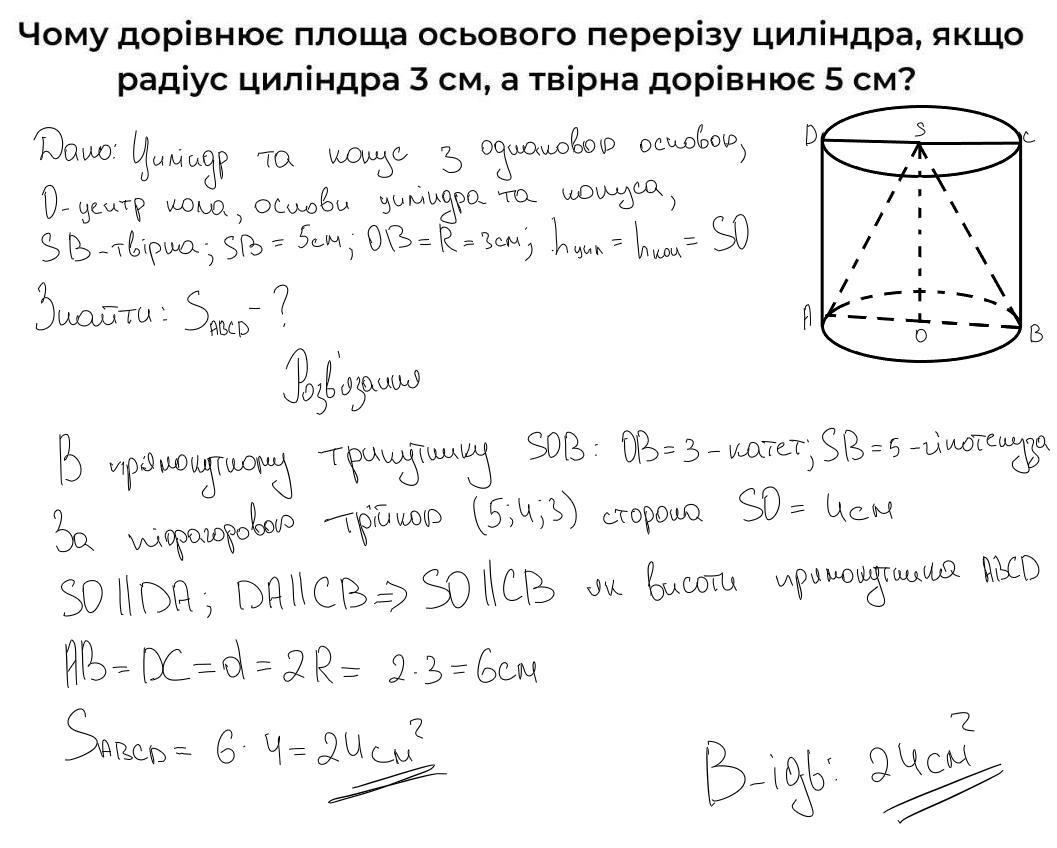 Чому дорівнює площа осьового перерізу циліндра, якщо
радіус циліндра 3 см, а твірна дорівнює 5 см?
Дано: Циліндр та конус з однаковою основою,
О-центр кола, основи циліндра та конуса,
SB-твірна; SB = 5см; OB = R = 3см; hцил = hкон = SO
Знайти: SABCD - ?
Розв'язання
В прямокутному трикутнику SOB: OB = 3 - катет; SB = 5 - гіпотенуза
За піфагоровою трійкою (5;4;3) сторона SO = 4см
SO || DA; DA || CB => SO || CB як висоти прямокутника ABCD
AB = DC = d = 2R = 2·3 = 6см
SABCD = 6·4 = 24см²
В-ідь: 24см²
D S C
A O B